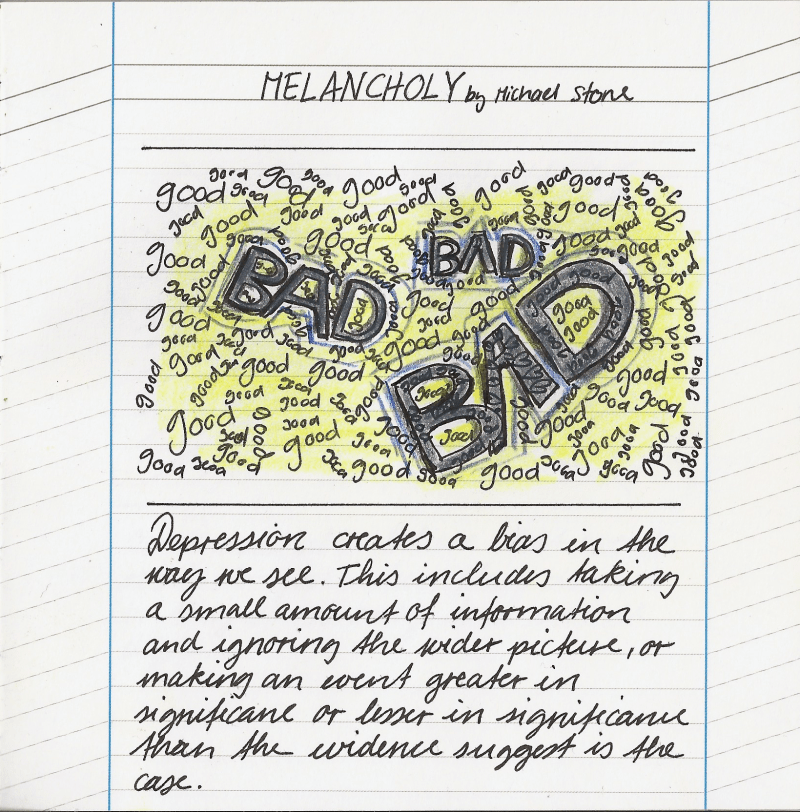 MELANCHOLY by Michael Stone
good good good good good good good good good good good good
good good good good good good good good good good good
good good good good BAD good good good
good BAD good good good good good good
good good good good BAD good good good
good good good good good good good good good
good good good good good good good good good
good good good good good good good good good
good good good good good good good good good
Depression creates a bias in the
way we see. This includes taking
a small amount of information
and ignoring the wider picture, or
making an event greater in
significane or lesser in significance
than the evidence suggest is the
case.